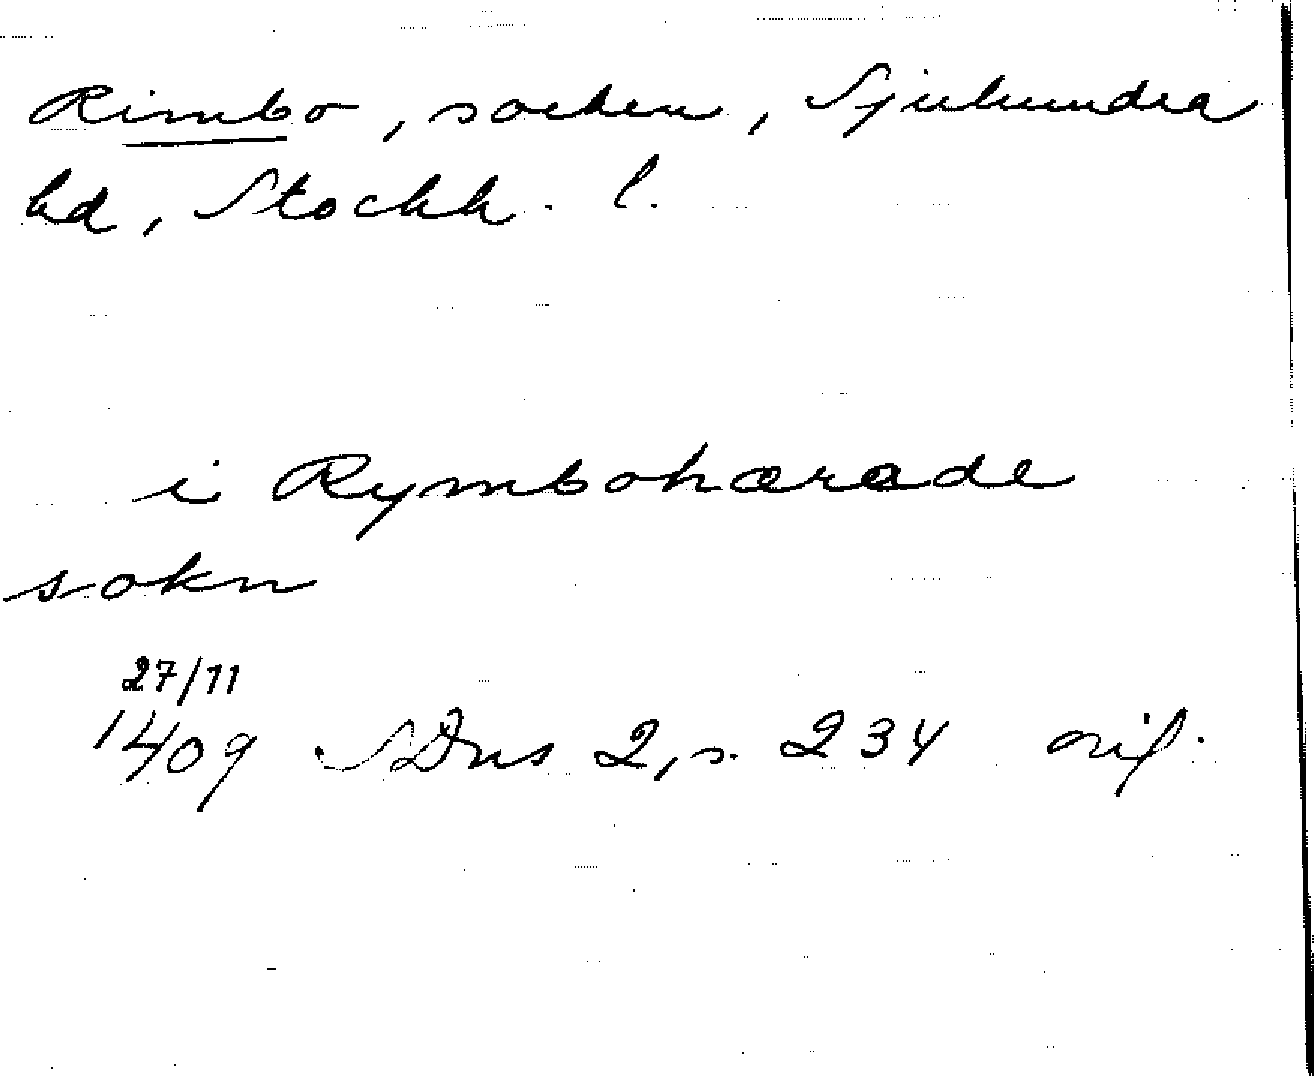 Rimbo, socken, Sjuhundra
hd, Stockh. l.
i Rymbohærade
sokn
27/11
1409 SDns 2, s. 234 orig.